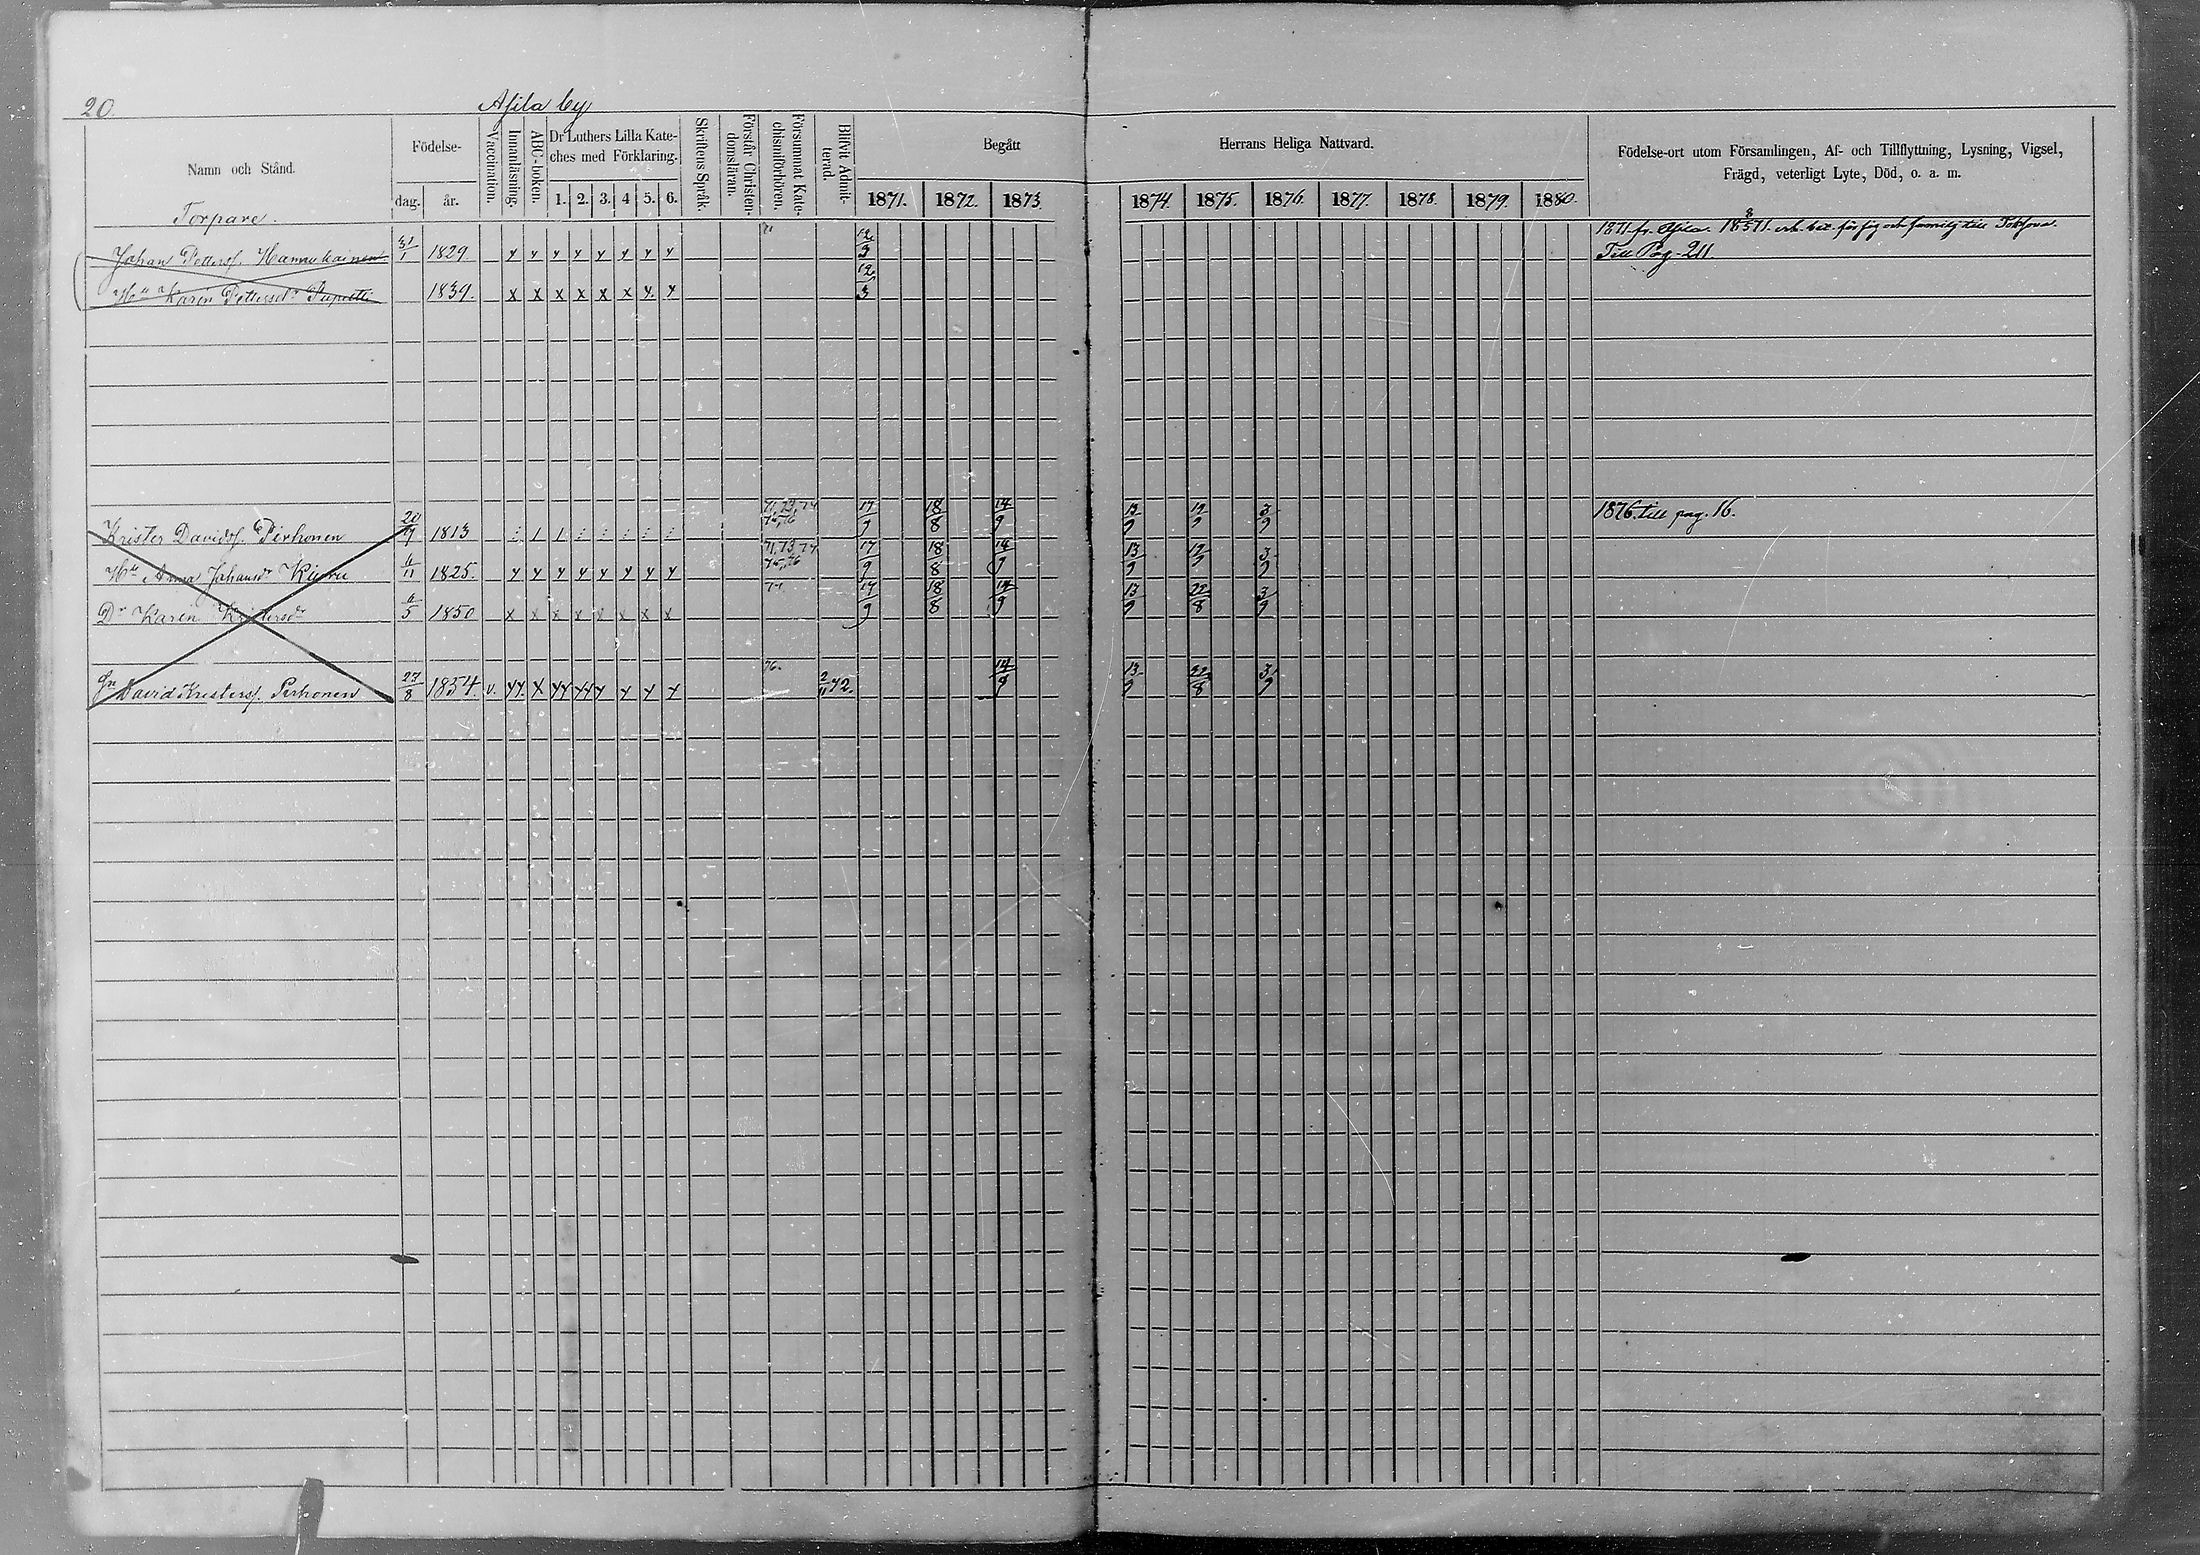 20.
Afila by
Namn och Stånd.
Födelse-
dag.
år.
Vaccination.
Innanläsning.
ABC-boken.
Dr Luthers Lilla Kate-
ches med Förklaring.
1. 2. 3. 4 5. 6.
Skriftens Språk.
Förstår Christen-
domsläran.
Försummat Kate-
chismiförhören.
Blifvit Admit-
terad.
Begått
1871. 1872. 1873.
Herrans Heliga Nattvard.
1874. 1875. 1876. 1877. 1878. 1879. 1880.
Födelse-ort utom Församlingen, Af- och Tillflyttning, Lysning, Vigsel,
Frägd, veterligt Lyte, Död, o. a. m.
Torpare.
Johan Petterss. Hannukainen 31/1 1829 y y y y y y y y 71 12/3 1871 fr. Afila. 18 8/5 71. erh. bet. för sig och familj till
Till Pag. 211.
Hu Karin Pettersdr 1839. x x x x x x y. y 12/3
Krister Davidss. Pirhonen 20/7 1813 71, 73, 74 75, 76 17/9 18/8 14/9 13/9 19/9 3/9 1876. till pag. 16.
Hu Anna Johansdr 6/11 1825. y y y y y y y y 71, 73, 74 75, 76 17/9 18/8 14/9 13/9 19/9 3/9
Dr Karin Kristersdr 6/5 1850 x x x x x x x x 17/9 18/8 14/9 13/9 22/8 3/9
David Kristerss. Pirhonen 27/8 1854. v. yy. x yy yy y y y y 76. 2/11 72. 14/9 13/9 22/8 3/9